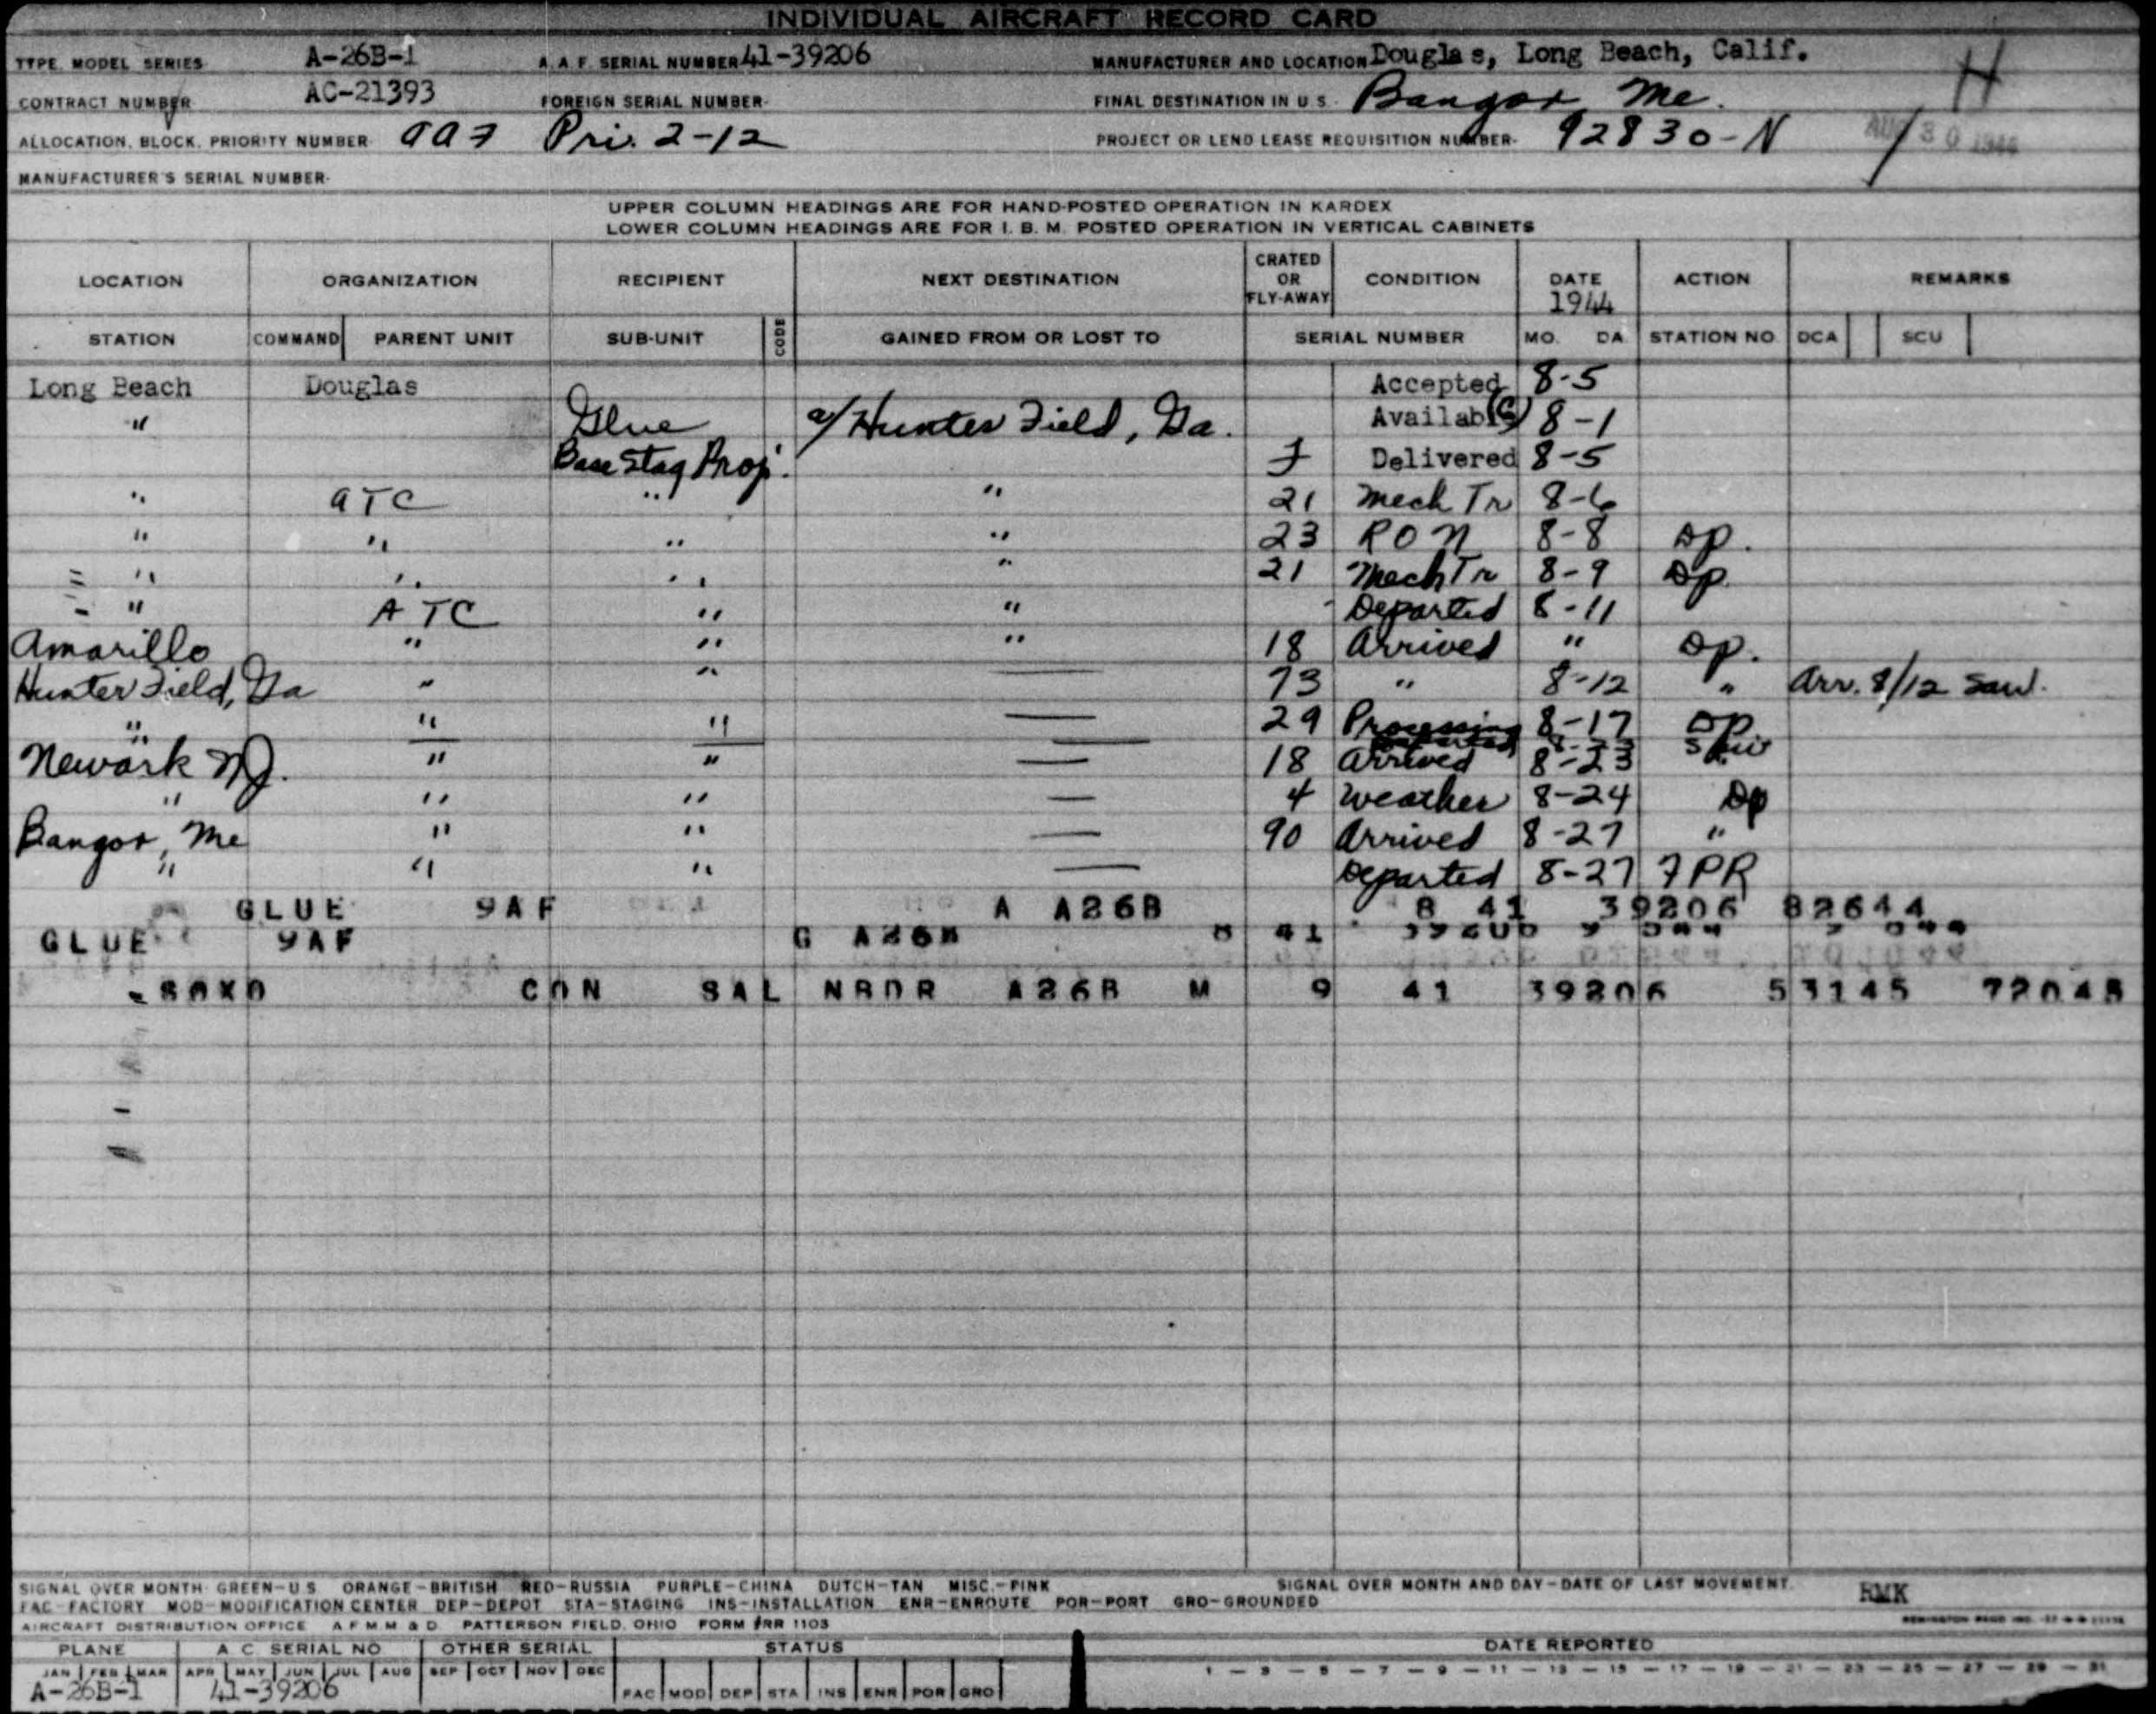 INDIVIDUAL AIRCRAFT RECORD CARD
TYPE MODEL SERIES A-26B-1 A.A.F. SERIAL NUMBER 41-39206 MANUFACTURER AND LOCATION Douglas, Long Beach, Calif. H
CONTRACT NUMBER AC-21393 FOREIGN SERIAL NUMBER- FINAL DESTINATION IN U S. Bangor, Me.
ALLOCATION, BLOCK, PRIORITY NUMBER Pri. 2-12 PROJECT OR LEND LEASE REQUISITION NUMBER- 92830-N AUG 30 1944
MANUFACTURER'S SERIAL NUMBER-
UPPER COLUMN HEADINGS ARE FOR HAND-POSTED OPERATION IN KARDEX
LOWER COLUMN HEADINGS ARE FOR I. B. M. POSTED OPERATION IN VERTICAL CABINETS
LOCATION ORGANIZATION RECIPIENT NEXT DESTINATION CRATED OR FLY-AWAY CONDITION DATE 1944 ACTION REMARKS
STATION COMMAND PARENT UNIT SUB-UNIT CODE GAINED FROM OR LOST TO SERIAL NUMBER MO. DA. STATION NO. DCA SCU
Long Beach Douglas Accepted 8-5
" Glue a/ Hunter Field, Ga. Availab(C) 8-1
Base Stag Proj. f Delivered 8-5
" ATC " " 21 Mech Tr 8-6
" " " " 23 RON 8-8 Dp.
" " " " 21 Mech Tr 8-9 Dp.
" ATC " " Departed 8-11
Amarillo " " " 18 Arrived " Dp.
Hunter Field, Ga " " — 73 " 8-12 " Arr. 8/12 Sav.
" " " — 29 Processing 8-17 Dp
Newark NJ. " " — 18 Arrived 8-23
" " " — 4 Weather 8-24 Dp
Bangor, Me " " — 90 Arrived 8-27 "
" " " — Departed 8-27 7PR
GLUE 9AF A A26B 8 41 39206 82644
GLUE 9AF G A26B 41
SOXO CON SAL NRDR A26B M 9 41 39206 53145 72045
SIGNAL OVER MONTH: GREEN-U S ORANGE-BRITISH RED-RUSSIA PURPLE-CHINA DUTCH-TAN MISC.-PINK SIGNAL OVER MONTH AND DAY-DATE OF LAST MOVEMENT.
FAC-FACTORY MOD-MODIFICATION CENTER DEP-DEPOT STA-STAGING INS-INSTALLATION ENR-ENROUTE POR-PORT GRO-GROUNDED RMK
AIRCRAFT DISTRIBUTION OFFICE A F M M & D PATTERSON FIELD, OHIO FORM #RR 1103
PLANE A C SERIAL NO OTHER SERIAL STATUS DATE REPORTED
JAN FEB MAR APR MAY JUN JUL AUG SEP OCT NOV DEC 1 - 3 - 5 - 7 - 9 - 11 - 13 - 15 - 17 - 19 - 21 - 23 - 25 - 27 - 29 - 31
A-26B-1 41-39206 FAC MOD DEP STA INS ENR POR GRO